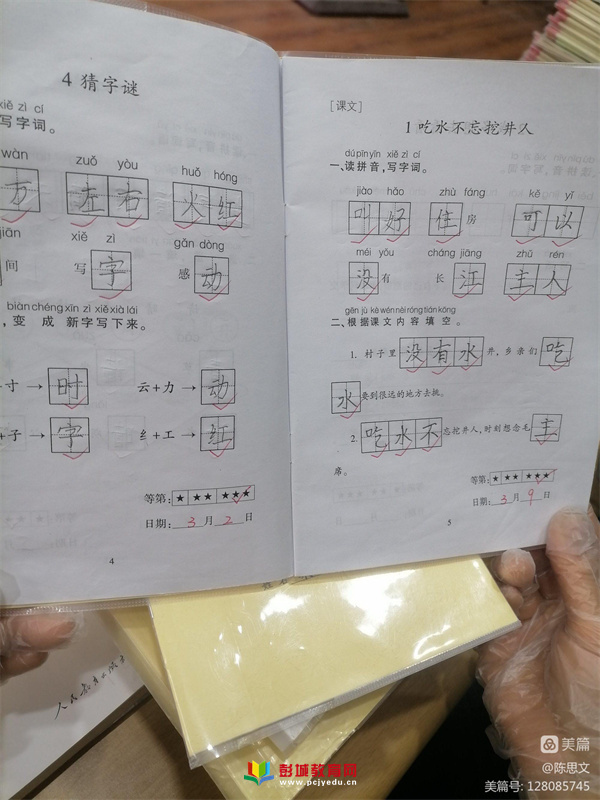 4 猜字谜
xiě zì cí
写字词。
wàn zuǒ yòu huǒ hóng
万 左右 火红
jiān xiě zì gǎn dòng
间 写字 感动
biàn chéng xīn zì xiě xià lái
，变 成 新字写下来。
寸 → 时 云+力 → 动
+子 → 字 纟+工 → 红
等第： ★ ★★ ★★★
日期：3月2日
4
[课文]
1 吃水不忘挖井人
dú pīn yīn xiě zì cí
一、读拼音，写字词。
jiào hǎo zhù fáng kě yǐ
叫好 住房 可以
méi yǒu cháng jiāng zhǔ rén
没有 长江 主人
gēn jù kè wén nèi róng tián kòng
二、根据课文内容填空。
1. 村子里没有水井，乡亲们吃
水要到很远的地方去挑。
2. 吃水不忘挖井人，时刻想念毛主
席。
等第： ★ ★★ ★★★
日期：3月9日
5
彭城教育网
www.pcjyedu.cn
美篇
@陈思文
美篇号: 128085745